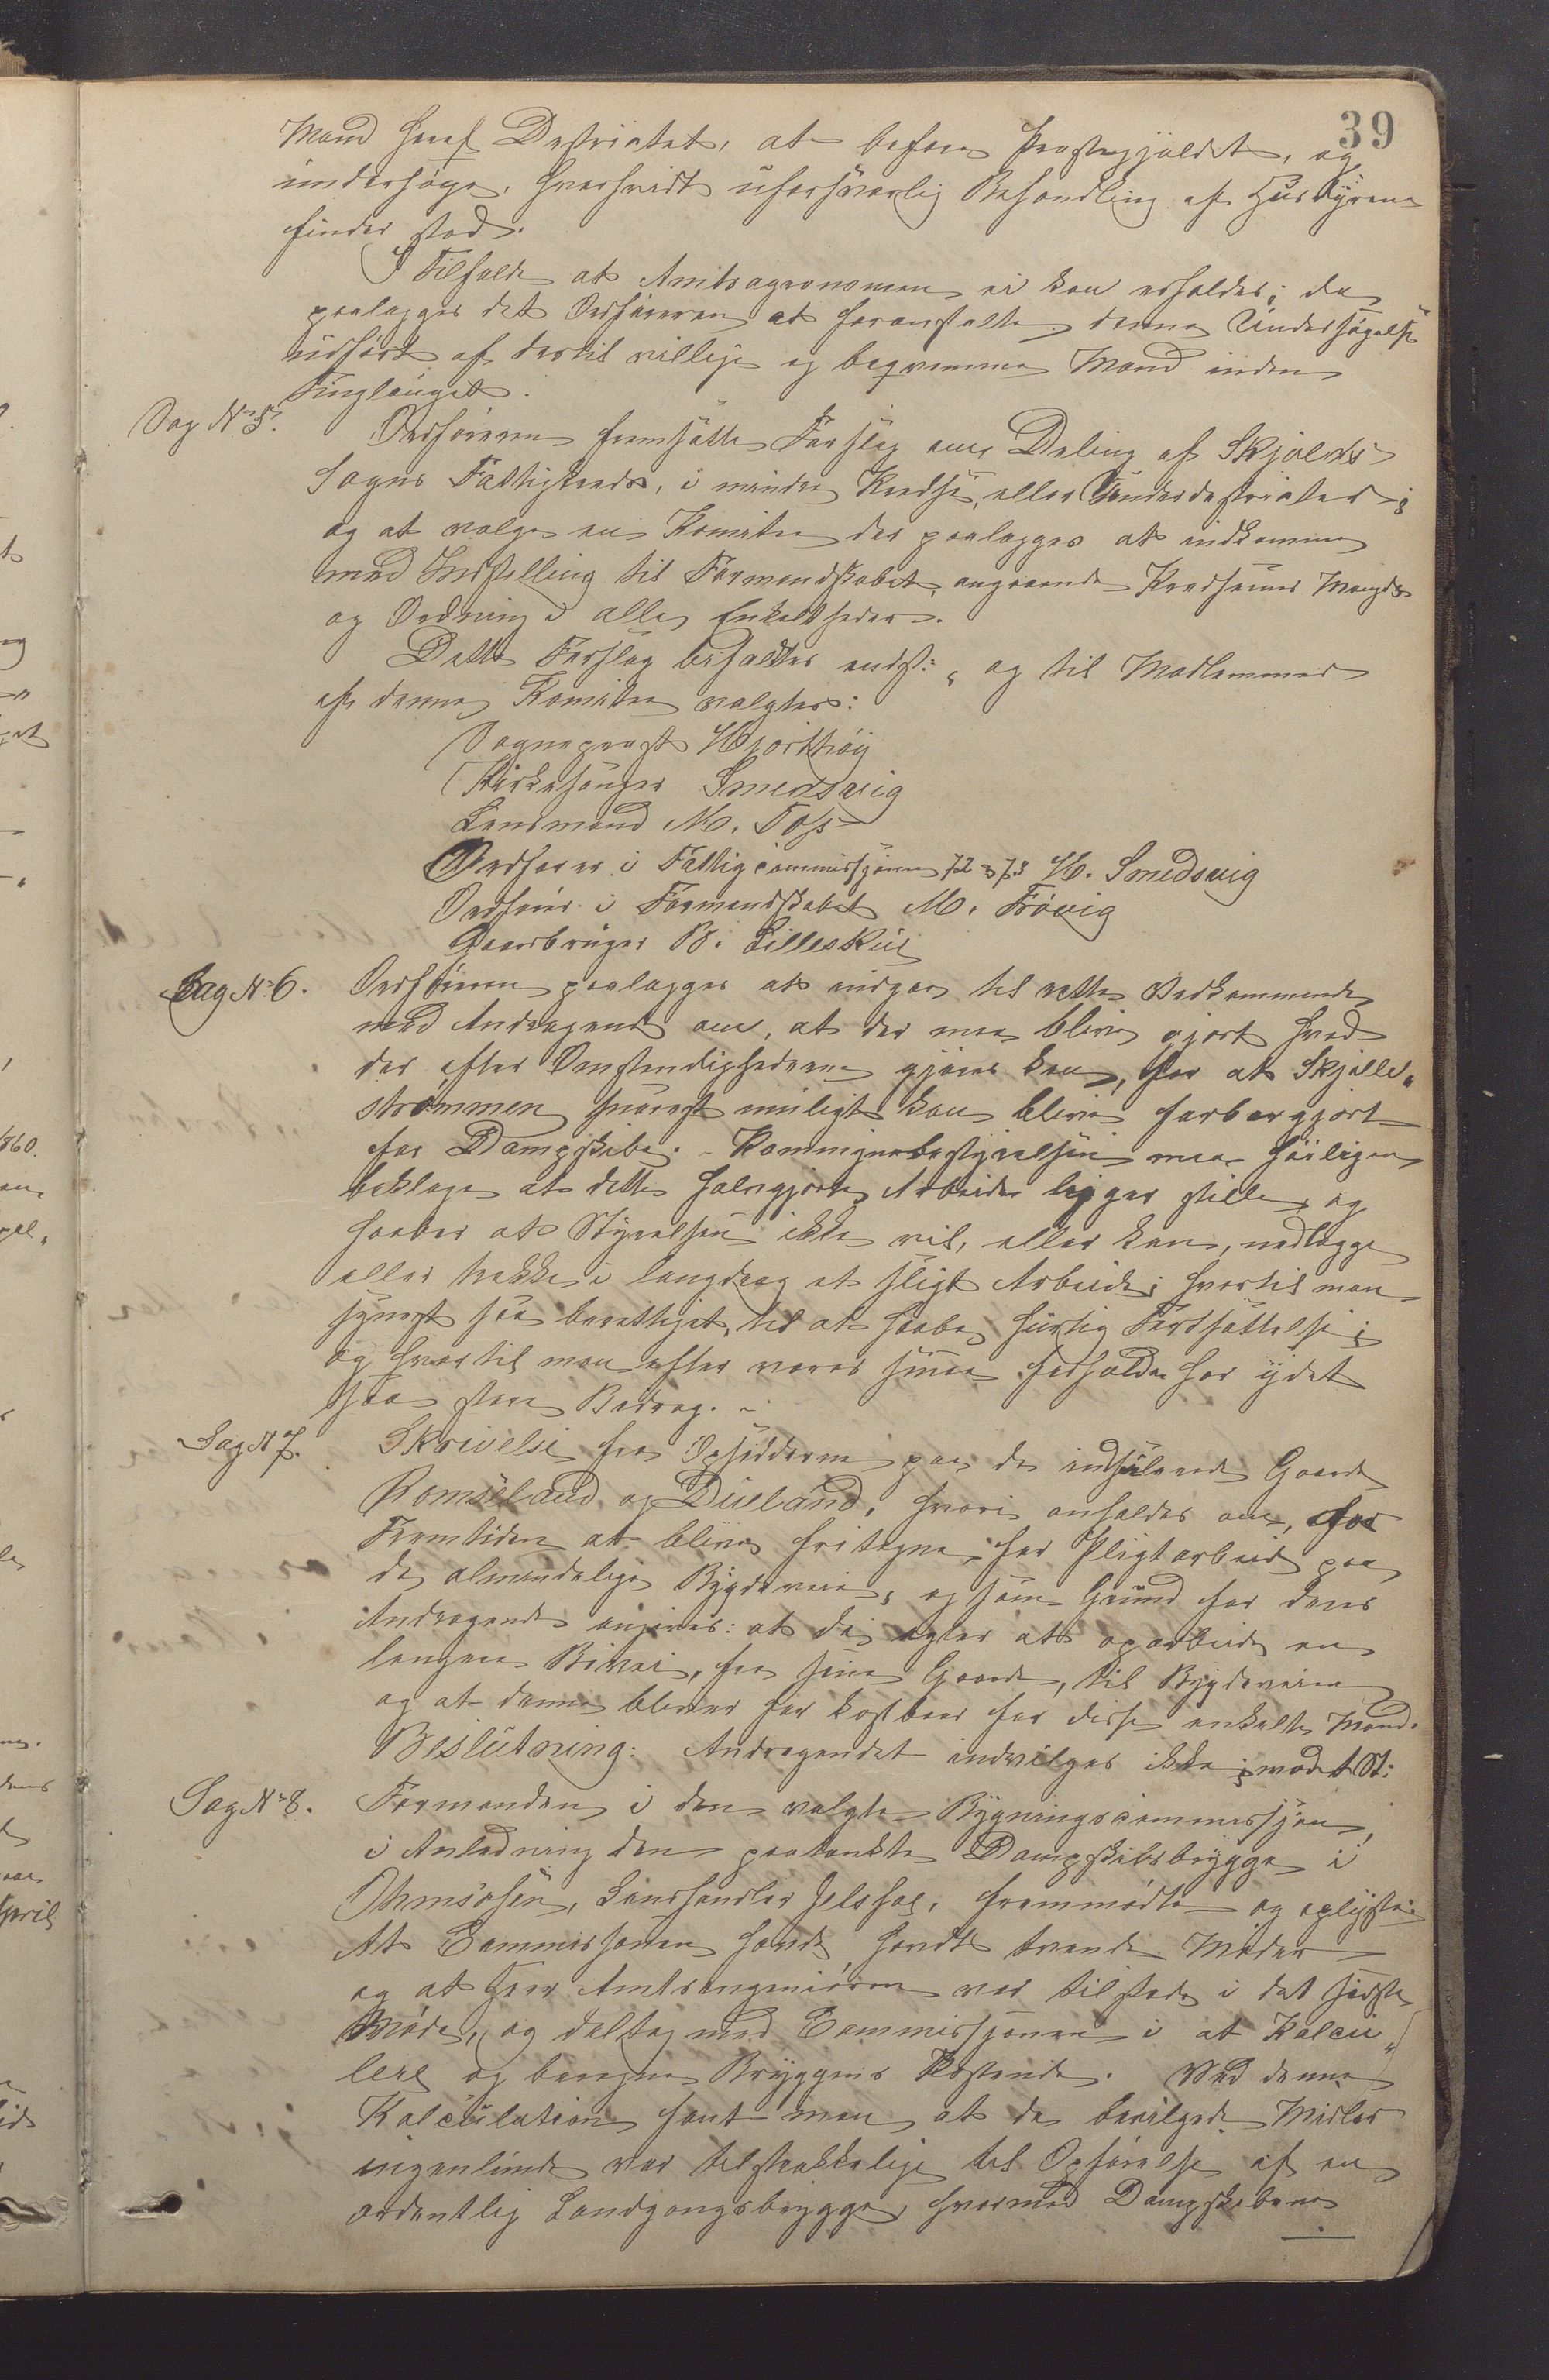 39
Mand hver Destriatet, at befare Prestegjældet, og
undersøge, hvorvidt uforsvarlig Behandling af Husdyrene
finder sted.
I Tilfælde at Amtsagronomen ei kan erholdes; da
paalægges det Ordføreren at foranstalte denne Undersøgelse
udført af dertil villige og beqvemme Mænd inden
Tinglauget.
Sag No 5. Ordføreren fremsatte Forslag om Deling af Skjolds
Sogns Fattigkreds, i mindre Kredse, eller Underdestrikter;
og at vælge en Komitee der paalægges at indkomme
med Indstilling til Formandskabet, angaaende Kredsenes Mængde
og Ordning i alle Enkeltheder.
Dette Forslag bifaldtes enst:, og til Medlemmer
af denne Komitee valgtes:
Sogneprest Hjorthøy
Kirkesanger Smedsvig
Lensmand M. Fos
Ordfører i Fattigcommissjonen 72-73 H. Smedsvig
Ordfører i Formandskabet M. Frøvig
Gaardbruger B. Lilleskui
Sag No 6. Ordføreren paalægges at indgaa til rette Vedkommende
med Andragende om, at der maa blive gjort hvad
der efter Omstendighederne gjøres kan, for at Skjolde-
strømmen snarest muligt kan blive farbargjort
for Dampskibe. - Kommunebestyrelsen maa høiligen
beklage at dette halvgjorte Arbeide ligger stille, og
haaber at Styrelsen ikke vil, eller kan, nedlægge
eller trække i langdrag et sligt Arbeide; hvortil man
synest saa berettiget, til at haabe hurtig Fortsættelse;
og hvortil man efter vores smaa Forholde har ydet
saa store Bidrag. -
Sag No 7. Skrivelse fra Opsidderne paa de indsluttede Gaarde
Romsæland og Dueland, hvori anholdes om, for
Fremtiden at blive fritagne for Pligtarbeide paa
de almindelige Bygdeveie, og som Grund for deres
Andragende angives: at de agter at oparbeide en
længere Bivei, fra sine Gaarde, til Bygdeveien
og at denne bliver for kostbar for disse enkelte Mænd.
Beslutning: Andragendet indvilges ikke; imod et St:
Sag No 8. Formanden i den valgte Bygningscommissjon,
i Anledning den paatænkte Dampskibsbrygge i
Ølmsosen, Landhandler Helshal, fremmødte og oplyste:
At Commissionen havde havdt tvende Møder
og at Herr Amtsingeniøren var tilstede i det sidste
Møde, og deltog med Commissjonen i at Kalcu-
lere og beregne Bryggens Kostende. Ved denne
Kalculation fant man at de bevilgede Midler
ingenlunde var tilstrækkelige til Opførelse af en
ordentlig Landgangsbrygge, hvormed Dampskibene